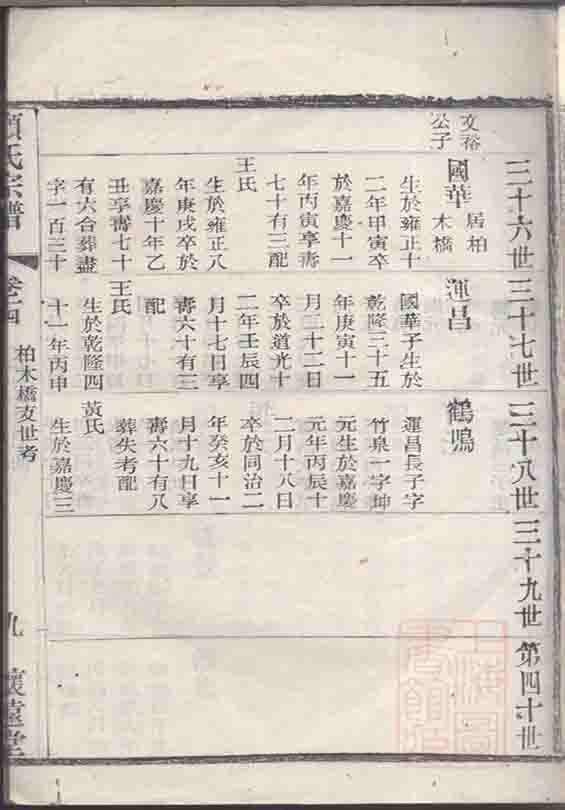 三十六世
三十七世
三十八世
三十九世
第四十世
文裕
公子
國華
居柏
木橋
生於雍正十
二年甲寅卒
於嘉慶十一
年丙寅享壽
七十有三配
王氏
生於雍正八
年庚戌卒於
嘉慶十年乙
丑享壽七十
有六合葬盡
字一百三十
運昌
國華子生於
乾隆三十五
年庚寅十一
月二十二日
卒於道光十
二年壬辰四
月十七日享
壽六十有三
配
王氏
生於乾隆四
十一年丙申
鶴鳴
運昌長子字
竹泉一字坤
元生於嘉慶
元年丙辰十
二月十八日
卒於同治二
年癸亥十一
月十九日享
壽六十有八
葬失考配
黃氏
生於嘉慶三
項氏宗譜
卷之四
柏木橋支世考
九
懷遠堂
上海圖
書館藏